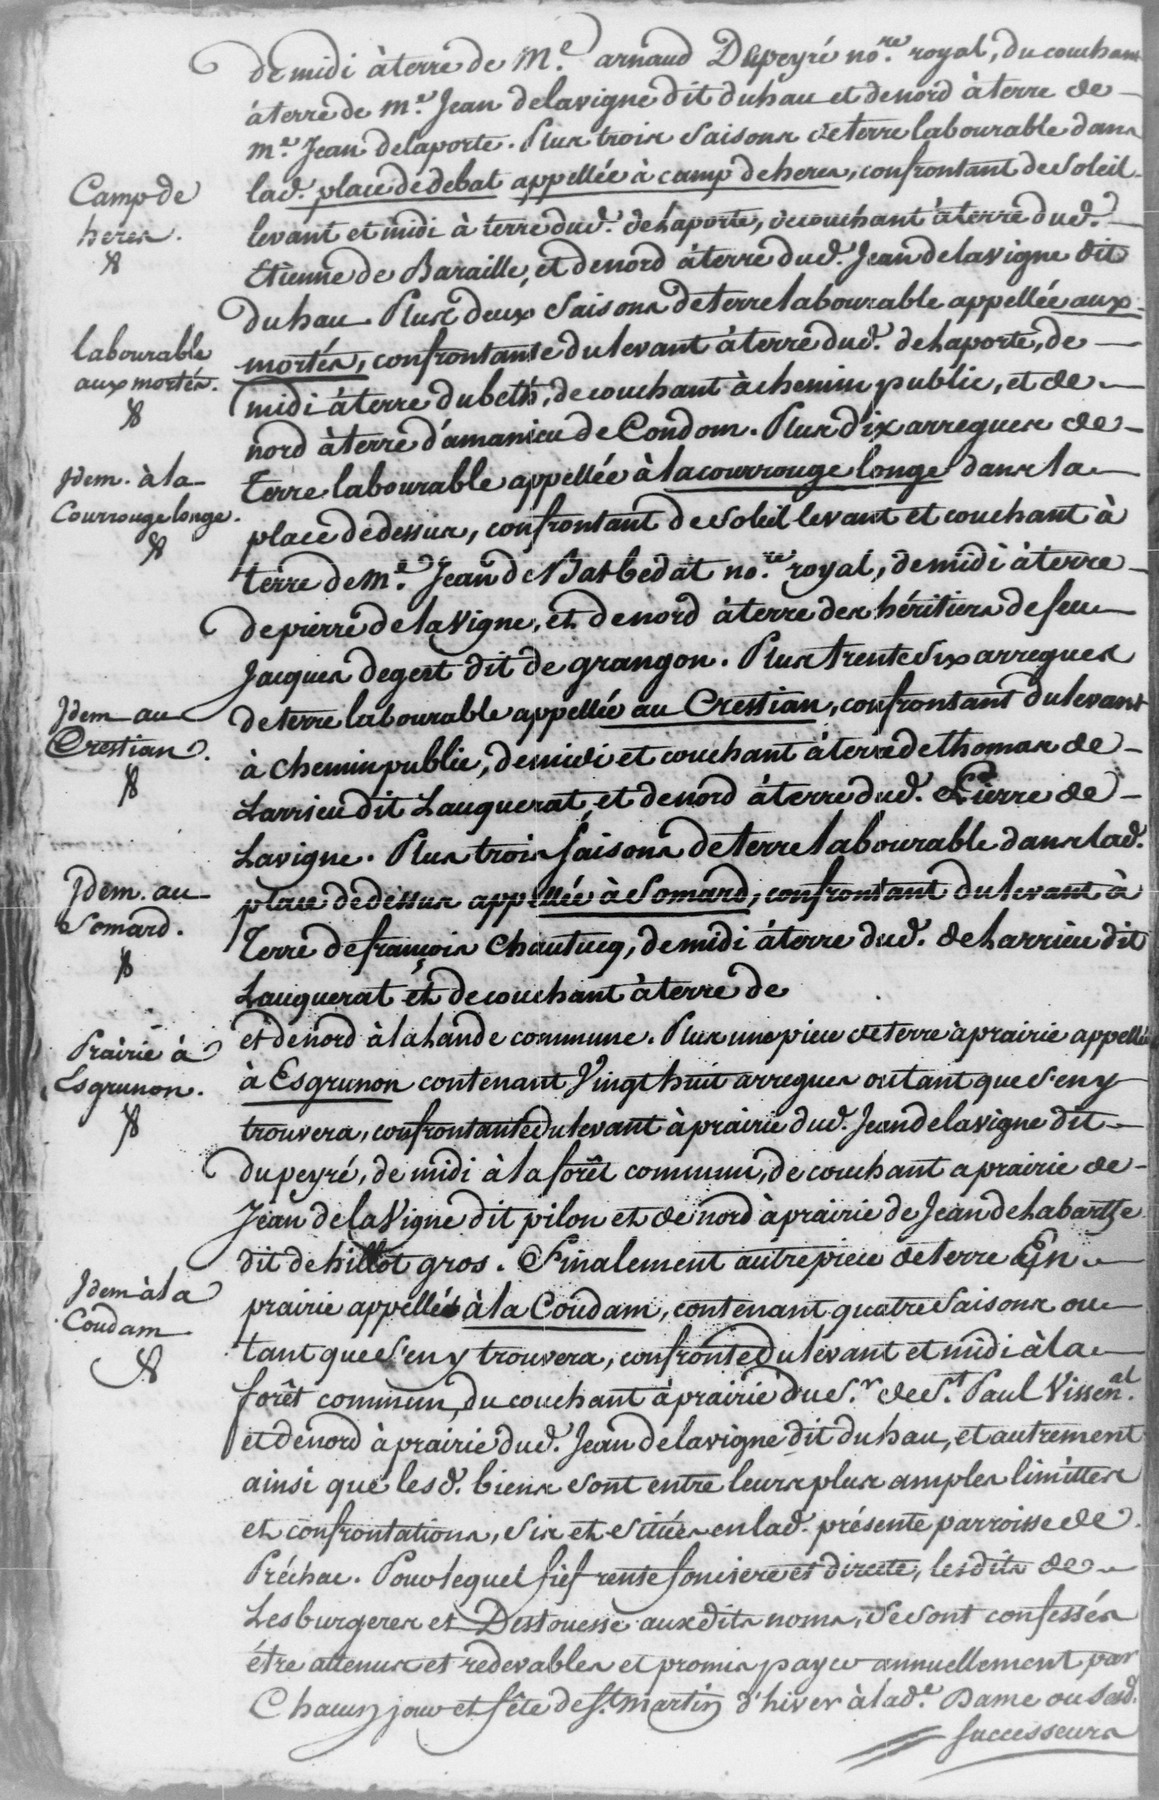 de midi à terre de M.e arnaud Dupeyré no.re royal, du couchant
à terre de m.e Jean delavigne dit duhau et de nord à terre de
m.e Jean delaporte. Plus trois saisons de terre labourable dans
lad. place de debat appellée à camp de heres, confrontant de soleil
Camp de
heres.
levant et midi à terre dud. delaporte, de couchant à terre dud.
Etienne de Baraille, et de nord à terre dud. Jean delavigne dit
duhau. Plus deux saisons de terre labourable appellée aux
labourable
aux mortés.
mortés, confrontante du levant à terre dud. delaporte, de
midi à terre dubeth, de couchant à chemin public, et de
nord à terre d'amanieu de Condom. Plus dix arregues de
Idem. à la
Courrouge longe.
terre labourable appellée à la courrouge longe dans la
place de dessus, confrontant de soleil levant et couchant à
terre de m.e Jean de Barbedat no.re royal, de midi à terre
de pierre de laVigne, et de nord à terre des héritiers de feu
Jacques degert dit de grangon. Plus trente six arregues
Idem au
Crestian.
de terre labourable appellée au Crestian, confrontant du levant
à chemin public, de midi et couchant à terre de thomas de
Larrieu dit Lauquerat, et de nord à terre dud. Pierre de
Lavigne. Plus trois saisons de terre labourable dans lad.
Idem. au
Somard.
place de dessus appellée à Somard, confrontant du levant à
terre de françois Chautucq, de midi à terre dud. de Larrieu dit
Lauquerat et de couchant à terre de
et de nord à la lande commune. Plus une piece de terre à prairie appellée
Prairie à
Esgrunon.
à Esgrunon contenant Vingt huit arregues ou tant que s'en y
trouvera, confrontante du levant à prairie dud. Jean delavigne dit
dupeyré, de midi à la forêt commun, de couchant a prairie de
Jean de laVigne dit pilon et de nord à prairie de Jean de Labarthe
dit de hillot gros. Finalement autre piece de terre En
Idem à la
Coudam
prairie appellée à la Coudam, contenant quatre saisons ou
tant que s'en y trouvera, confronte du levant et midi à la
forêt commun, du couchant à prairie du S.r de S.t Paul Vissen.al
et de nord à prairie dud. Jean delavigne dit duhau, et autrement
ainsi que lesd. biens sont entre leurs plus amples limittes
et confrontations, sis et situés en lad. présente parroisse de
Préchac. Pour lequel fief rente fonciere et directe, lesdits de
Lesburgeres et Destouesse auxdits noms, se sont confessés
être attenus et redevables et promis payer annuellement par
Chacun jour et fête de S.t Martin d'hiver à lad.e Dame ou sesd.
successeurs